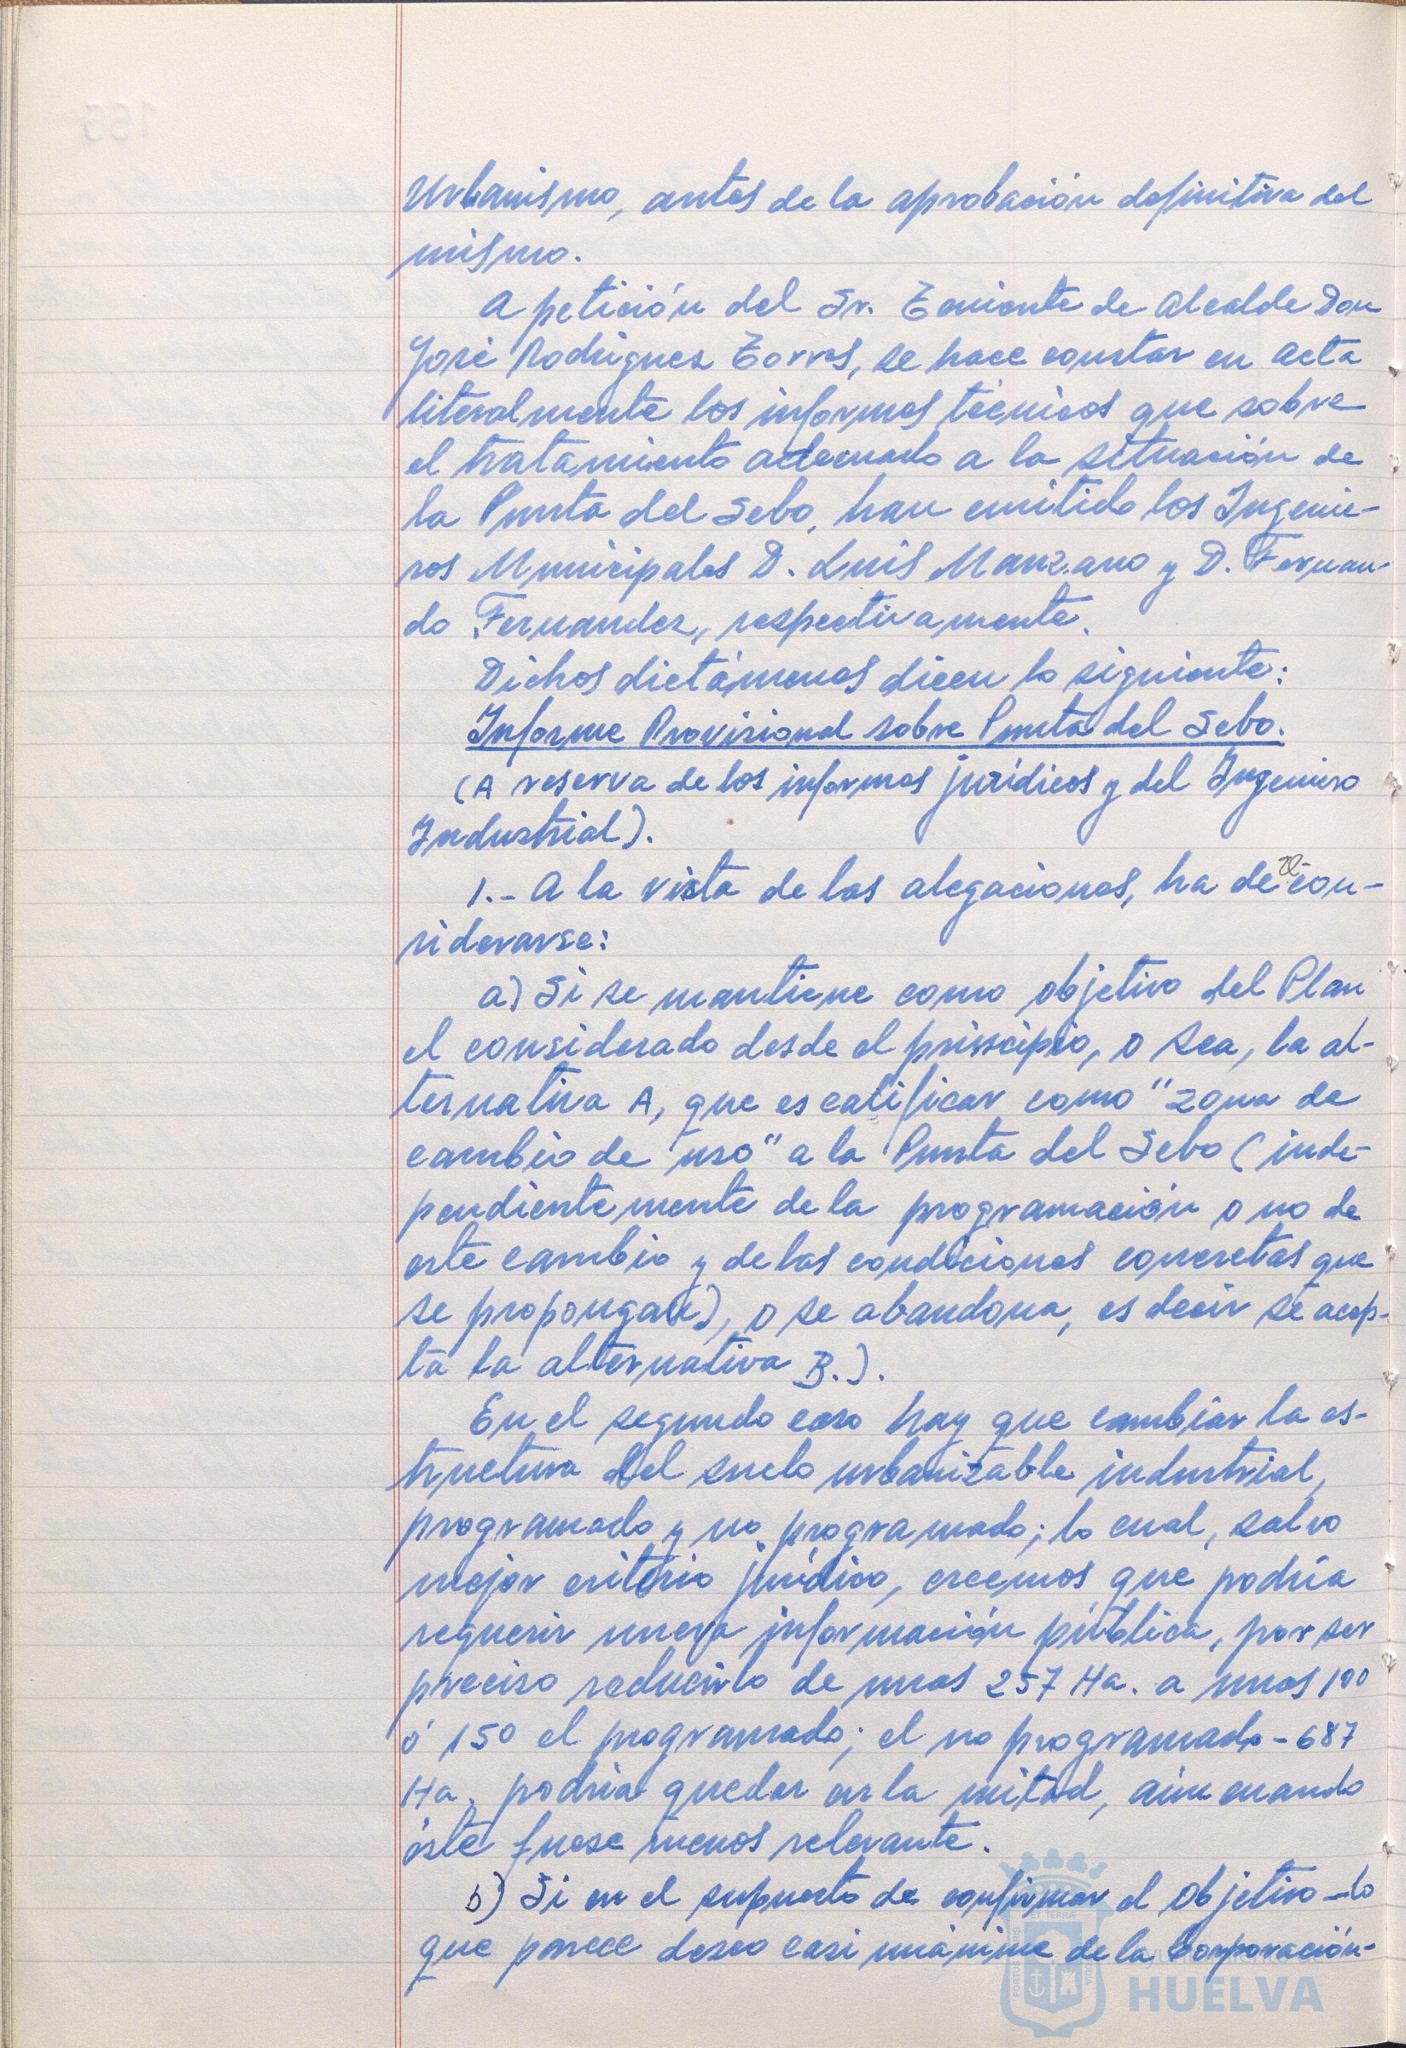 Urbanismo, antes de la aprobación definitiva del
mismo.
A petición del Sr. Teniente de Alcalde Don
José Rodriguez Torres, se hace constar en acta
literalmente los informes técnicos que sobre
el tratamiento adecuado a la situación de
la Punta del Sebo, han emitido los Ingenie-
ros Municipales D. Luis Manzano y D. Fernan-
do Fernandez, respectivamente.
Dichos dictámenes dicen lo siguiente:
Informe Provisional sobre Punta del Sebo.
(A reserva de los informes jurídicos y del Ingeniero
Industrial).
1.- A la vista de las alegaciones, ha de con-
siderarse:
a) Si se mantiene como objetivo del Plan
el considerado desde el principio, o sea, la al-
ternativa A, que es calificar como "zona de
cambio de uso" a la Punta del Sebo (inde-
pendientemente de la programación o no de
este cambio y de las condiciones concretas que
se propongan), o se abandona, es decir se acep-
ta la alternativa B.).
En el segundo caso hay que cambiar la es-
tructura del suelo urbanizable industrial,
programado y no programado; lo cual, salvo
mejor criterio jurídico, creemos que podría
requerir nueva información pública, por ser
preciso reducirlo de unas 257 Ha. a unas 100
ó 150 el programado; el no programado - 687
Ha. podría quedar en la mitad, aún cuando
éste fuese menos relevante.
b) Si en el supuesto de confirmar el objetivo -lo
que parece deseo casi unánime de la Corporación-
HUELVA